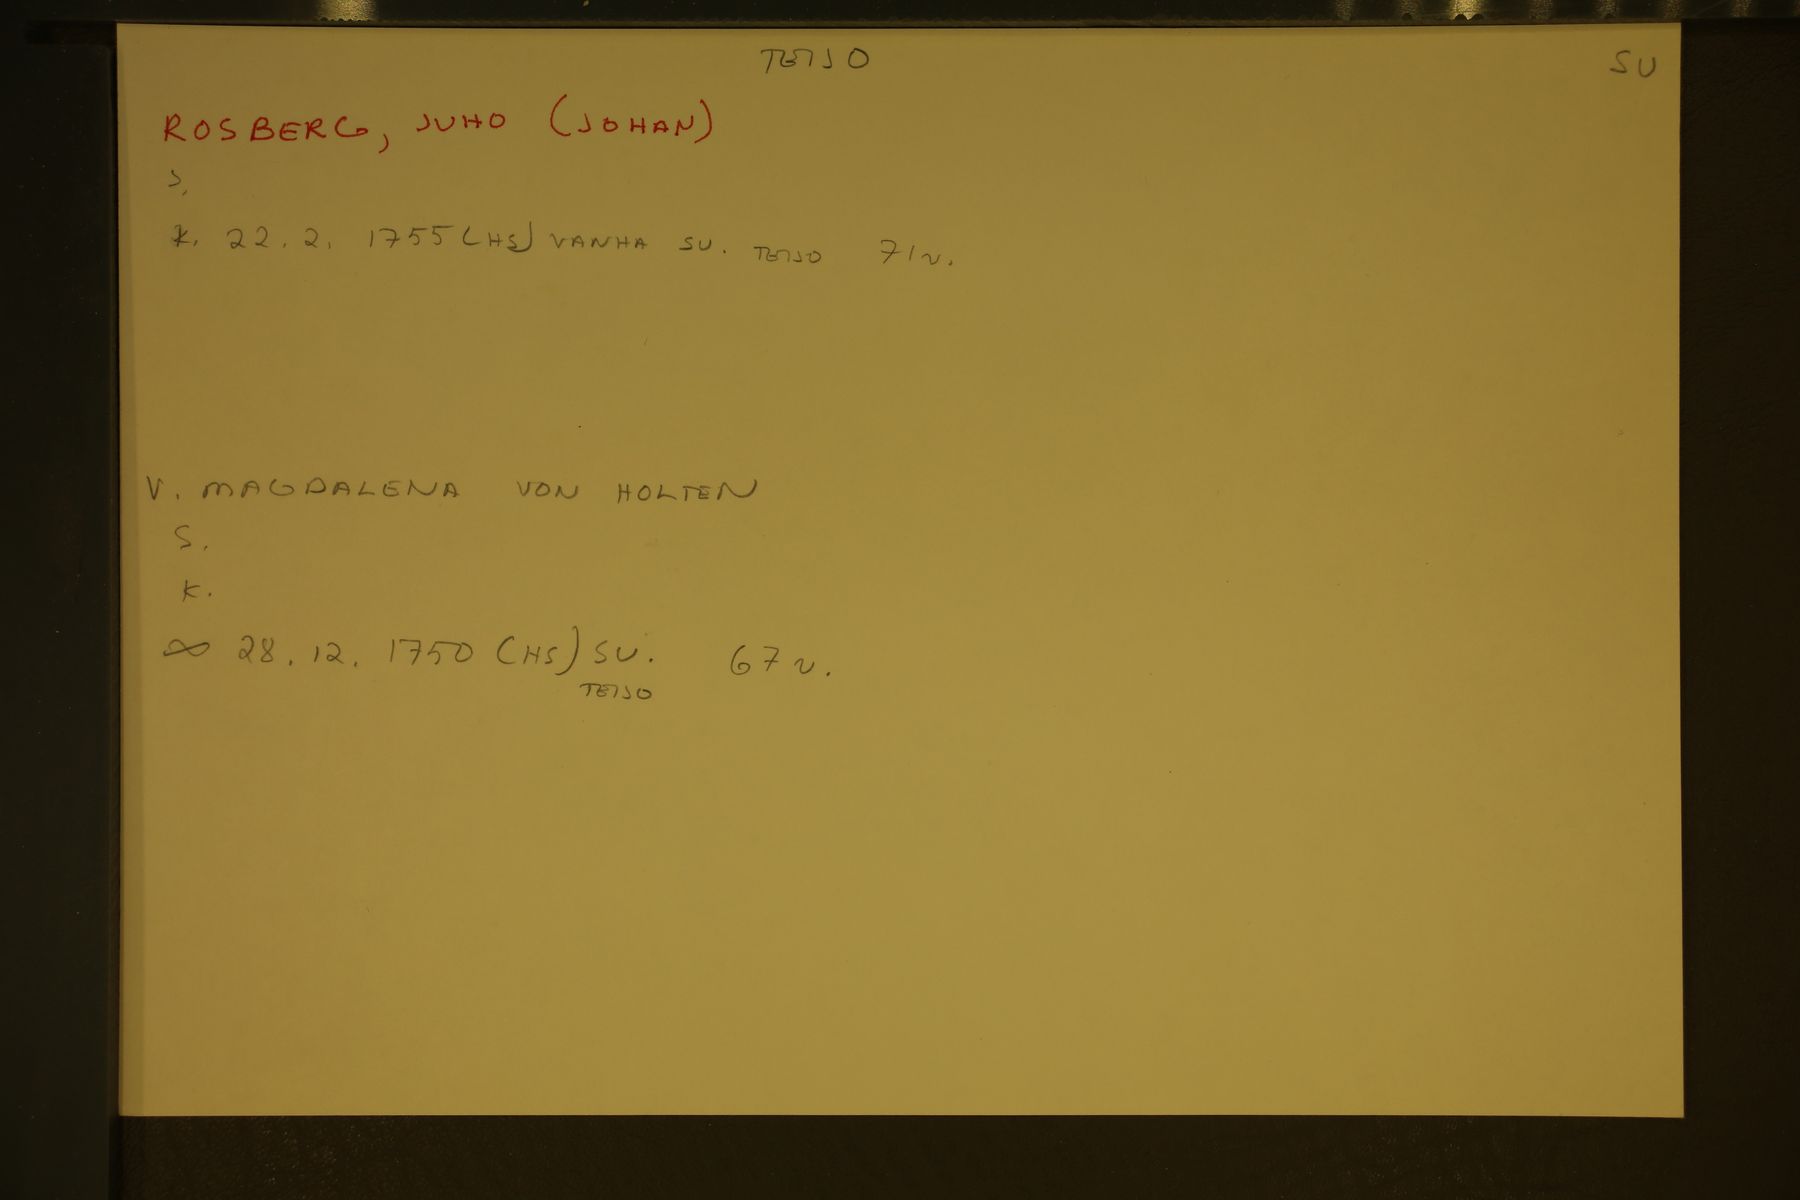 TEIJO SU
ROSBERG, JUHO (JOHAN)
S.
K. 22.2. 1755 (HS) VANHA SU. TEIJO 71 v.
V. MAGDALENA VON HOLTEN
S.
K.
∞ 28.12. 1750 (HS) SU. 67 v.
TEIJO